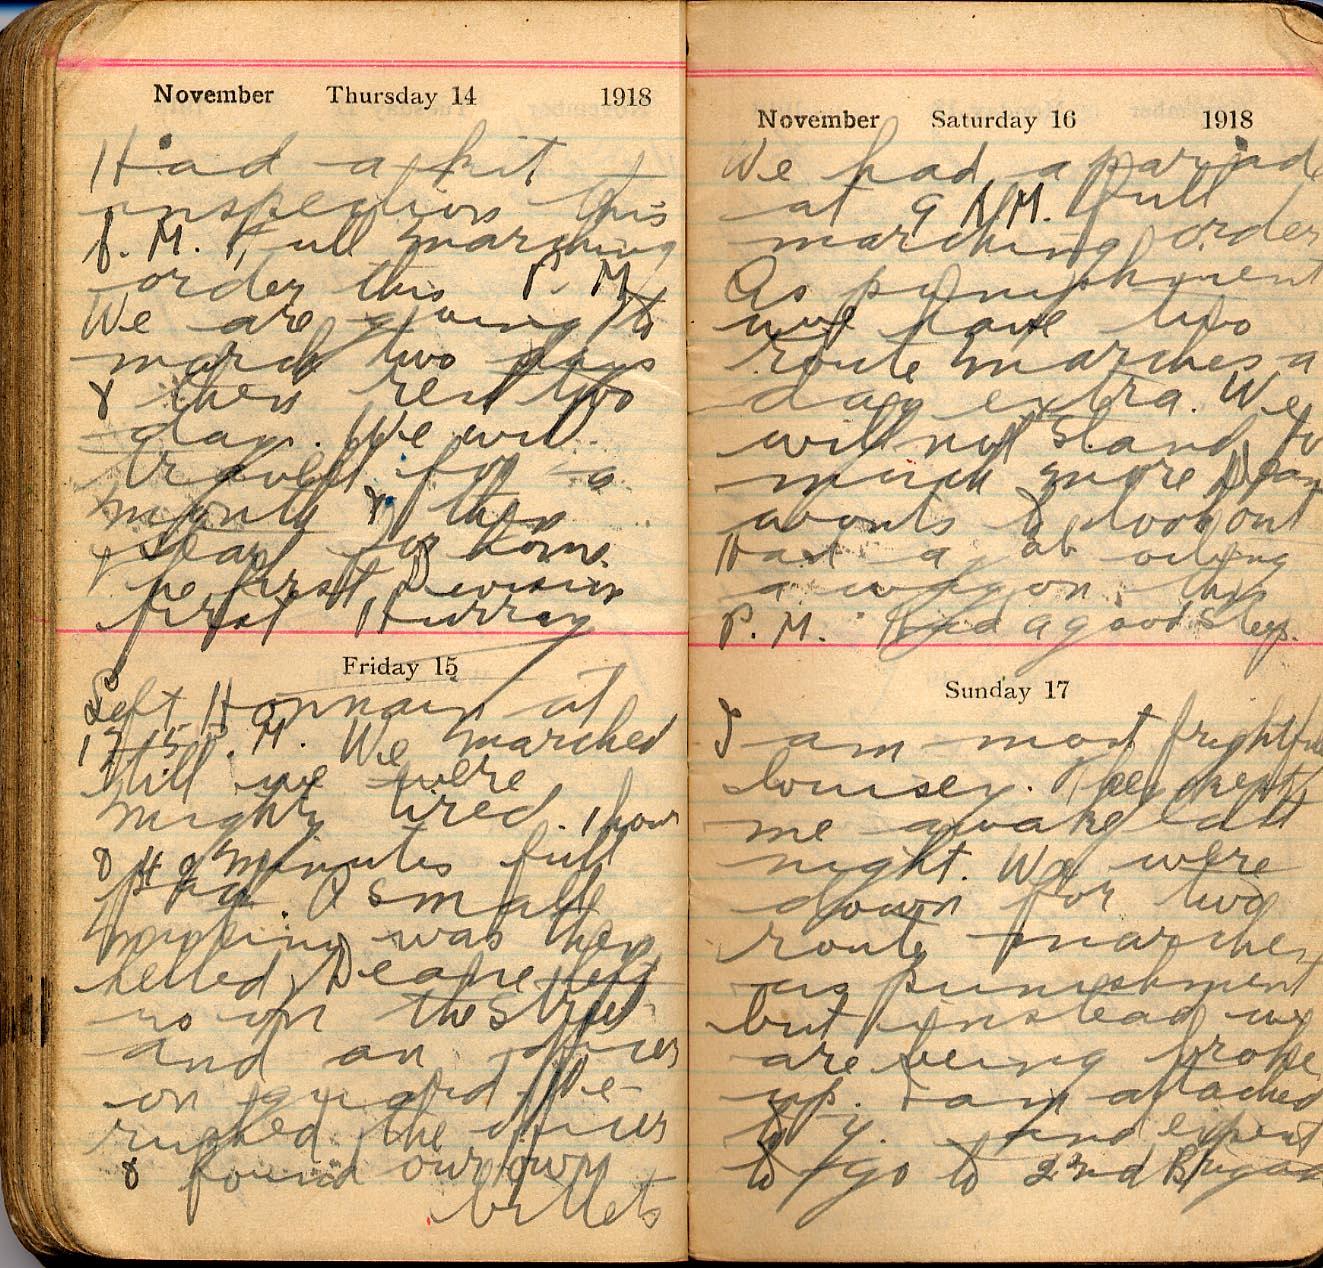 November Thursday 14 1918
Had a kit
inspection this
P. M. Full marching
order this P. M.
We are going to
march two days
& then rest two
days. We will
travell for a
month & then
start for home.
The first Devision
first Hurray
Friday 15
Left Honnain at
12.15 P. M. We marched
till we were
mighty tired. 1 hour
& minutes full
pack. A small
was then
helled, Deane left
us on the Street
and an officer
on guard. We
rushed the officer
& found our own
billets
November Saturday 16 1918
We had a parade
at 9 A.M. Full
marching order
As punishment
we have two
route marches a
day extra. We
will not stand to
much more Dean
wants to look out
Had a job oiling
a wagon this
P. M. Had a good Sleep.
Sunday 17
I am most frightful
lousey. They kept
me awake last
night. We were
down for two
route marches
as punishment
but instead we
are being broke
up. I am attached
to Y. and expect
to go to 2nd Brigade